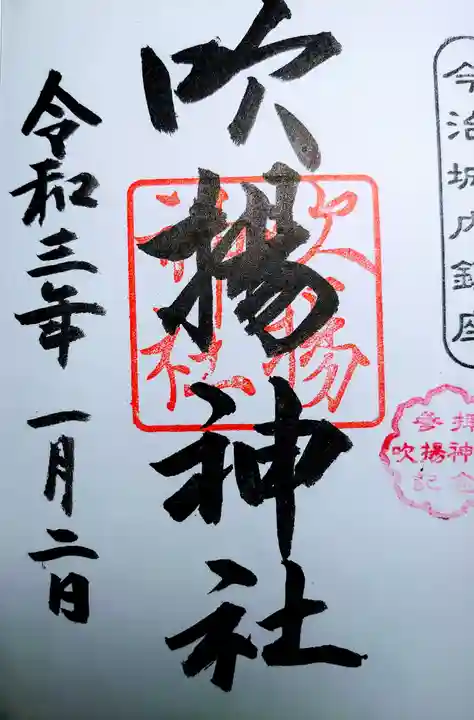 今治城内鎮座
参拝
吹揚神
記念
吹揚神社
吹揚神社
令和三年一月二日